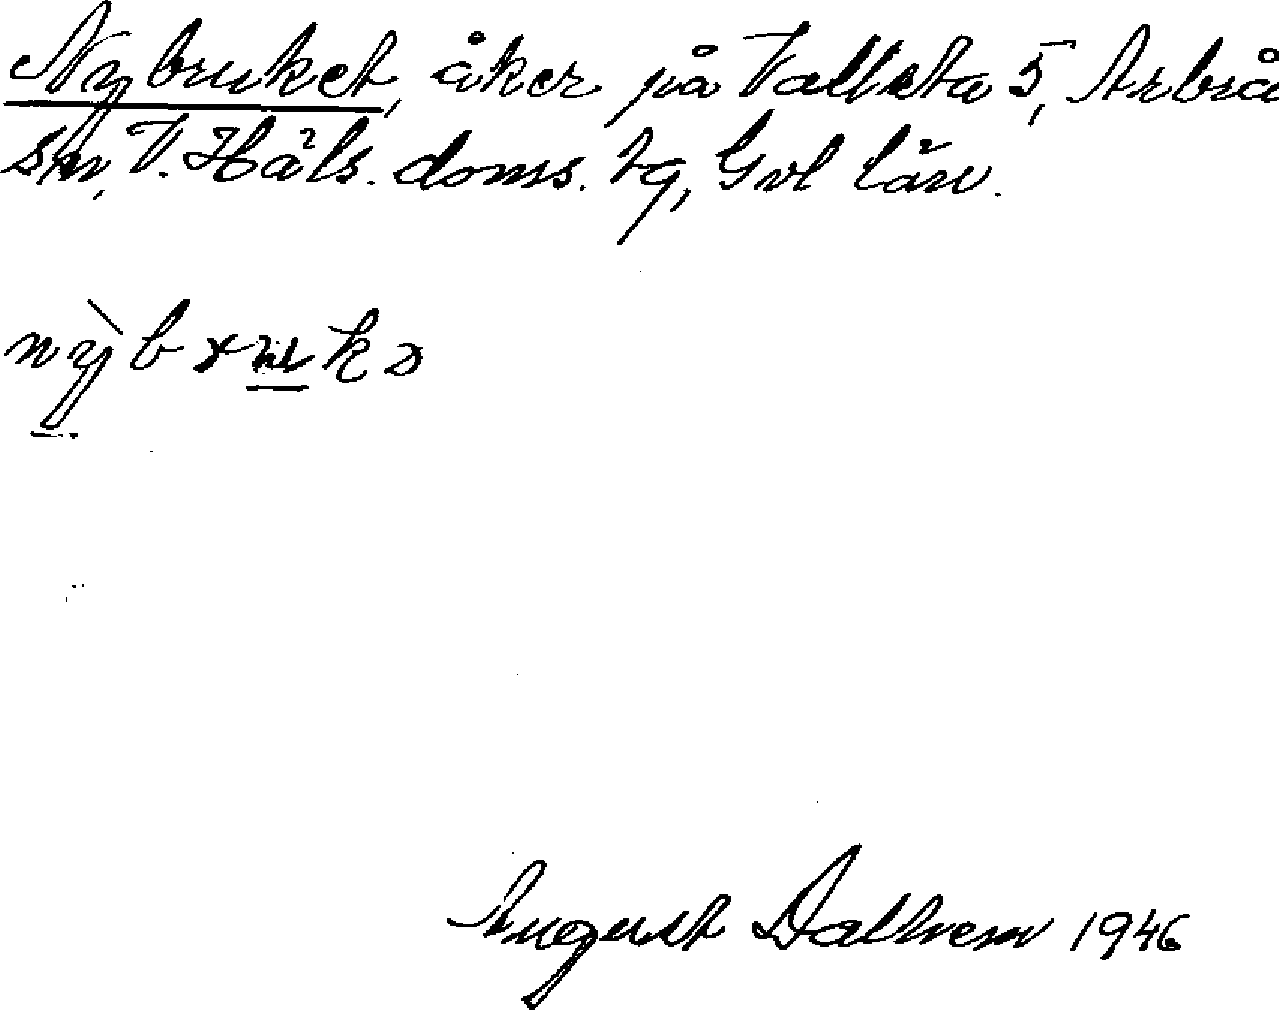 Nybruket, åker på Vallsta 5, Arbrå
sn, V. Häls. doms. tg, Gvl län.
nỳbrukə
August Dalhem 1946